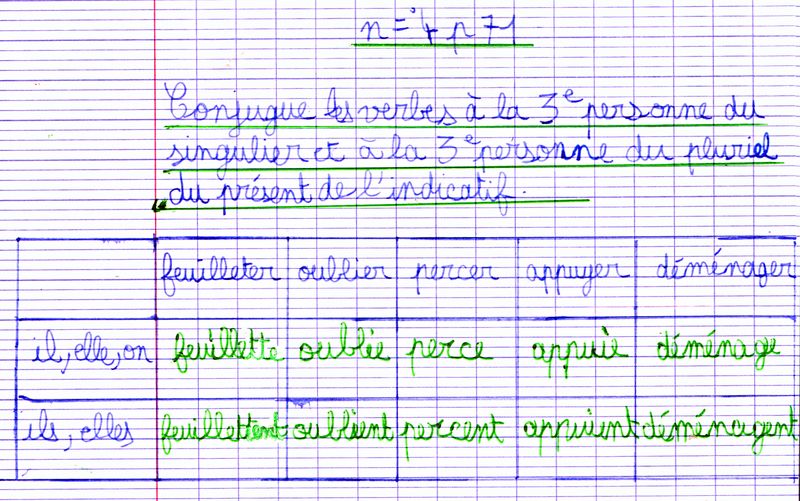 n=°4 p 71
Conjugue les verbes à la 3e personne du
singulier et à la 3e personne du pluriel
du présent de l'indicatif.
feuilleter oublier percer appuyer déménager
il, elle, on feuillette oublie perce appuie déménage
ils, elles feuillettent oublient percent appuient déménagent